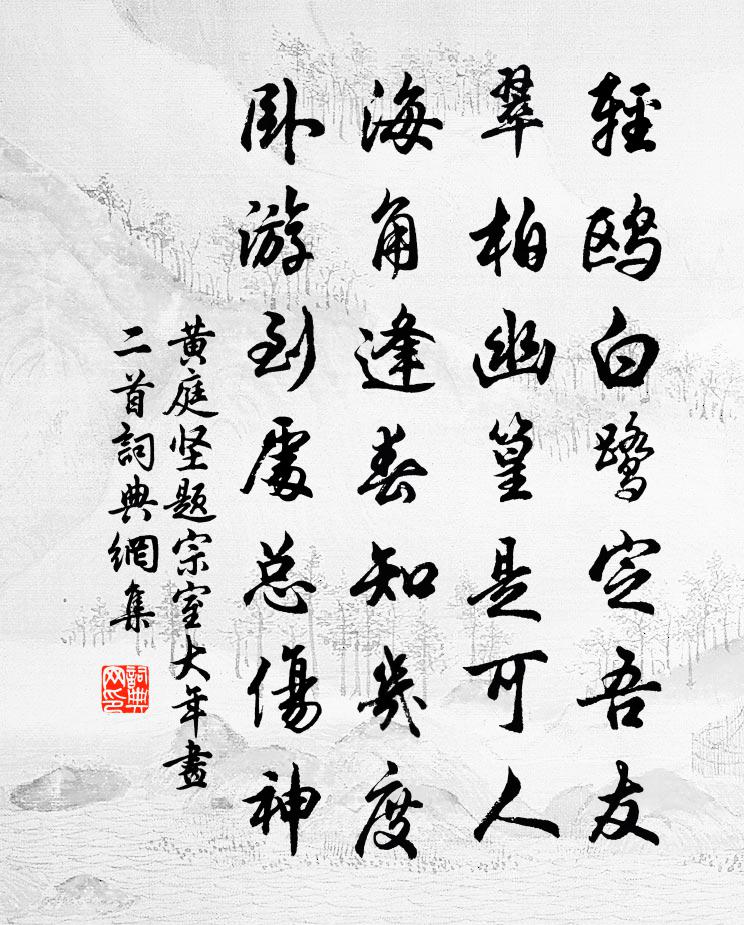 輕鷗白鷺定吾友
翠柏幽篁是可人
海角逢春知幾度
卧游到處总傷神
黄庭坚题宗室大年畫
二首詞典網集
詞典
网印